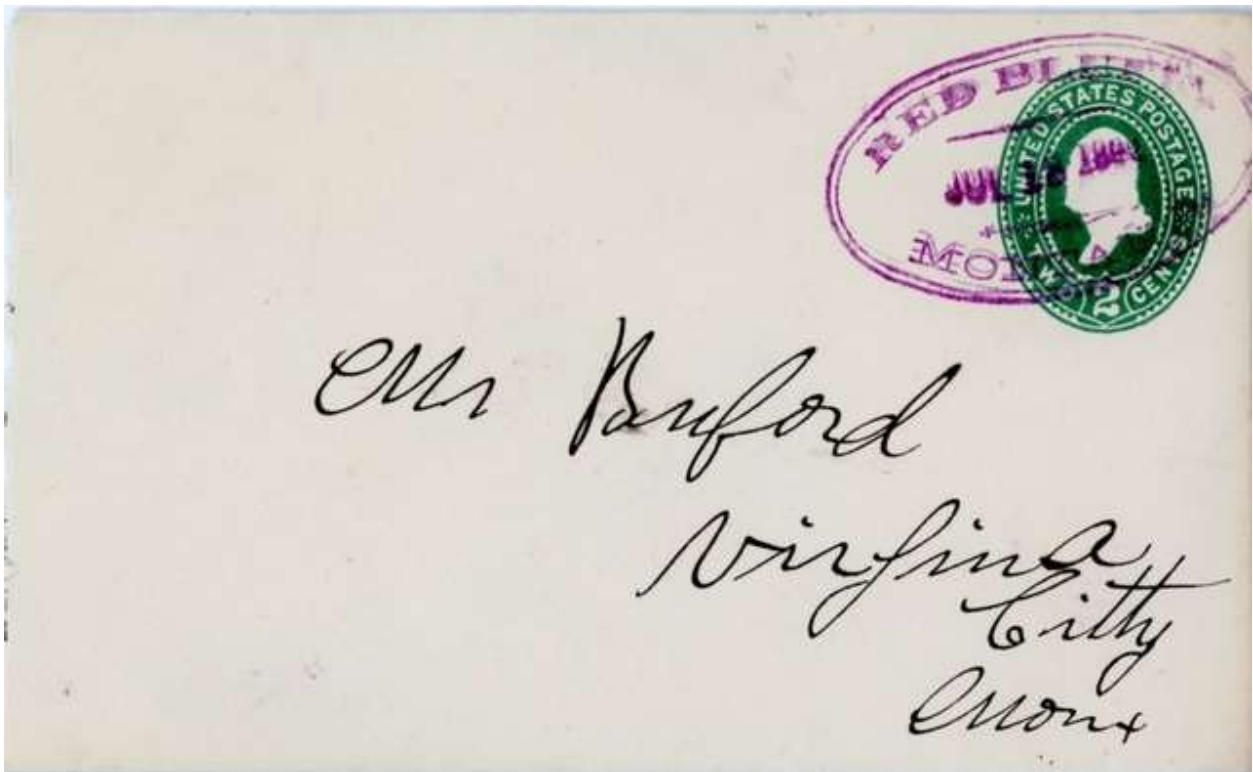 RED BLUFF,
JUL
MONTANA
UNITED STATES POSTAGE
TWO 2 CENTS
Mr Bunford
Virfina
Citty
Mont